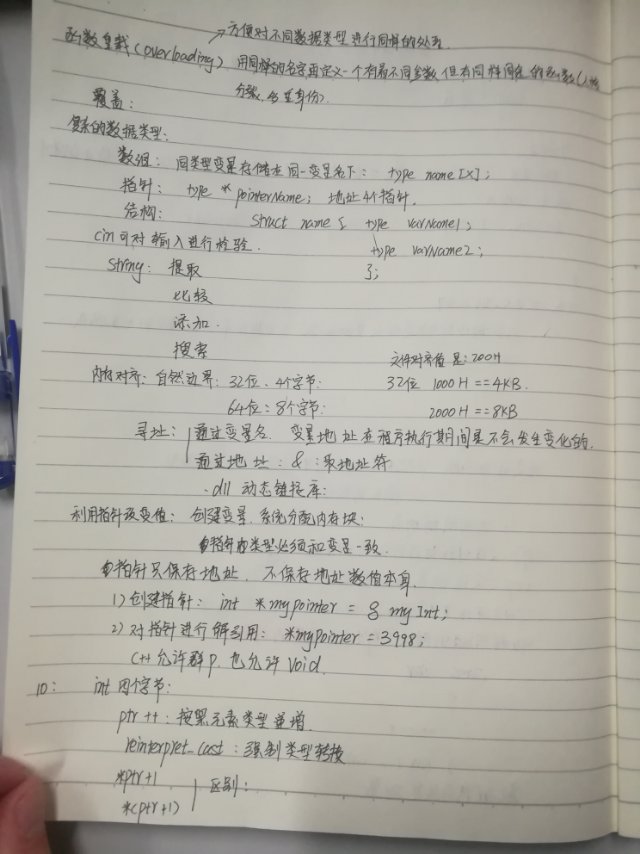 →方便对不同数据类型进行同样的处理.
函数重载(overloading) 用同样的名字再定义一个有着不同参数但有同样用途的函数(
覆盖:
复杂的数据类型:
数组: 同类型变量存储在同一变量名下: type name[x];
指针: type * pointerName; 地址4个指针.
结构: struct name { type varName1;
cin可对输入进行检验. type varName2;
string: 提取 };
比较
添加.
搜索 文件对齐值是:200H
内存对齐: 自然边界: 32位、4个字节: 32位 1000H == 4KB.
64位: 8个字节: 2000H == 8KB
寻址: 通过变量名. 变量地址在程序执行期间是不会发生变化的.
通过地址: & :取地址符
.dll 动态链接库:
利用指针改变值: 创建变量.系统分配内存块:
指针的类型必须和变量一致.
指针只保存地址. 不保存地址数值本身.
1)创建指针: int *mypointer = & myInt;
2) 对指针进行解引用: *mypointer = 3998;
C++允许群P.也允许void.
10: int 四个字节:
ptr ++ : 按照元素类型递增.
reinterpret_cast : 强制类型转换
*ptr+1 区别:
*(ptr+1)